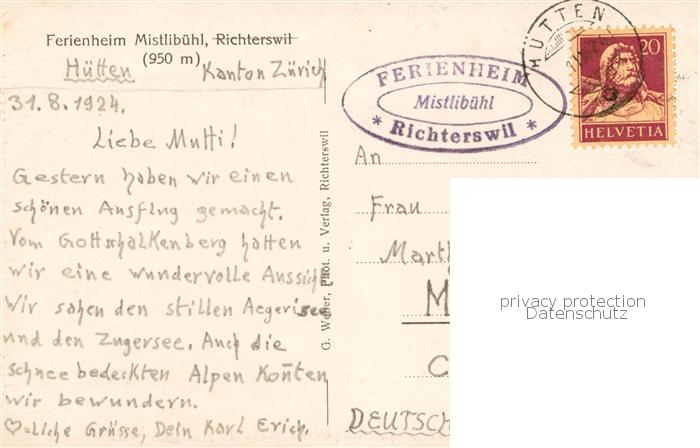 Ferienheim Mistlibühl, Richterswil
(950 m)
Hütten Kanton Zürich
31.8.1924.
Liebe Mutti!
Gestern haben wir einen
schönen Ausflug gemacht.
Vom Gottschalkenberg hatten
wir eine wundervolle Aussicht
Wir sahen den stillen Aegerisee
und den Zugersee. Auch die
schneebedeckten Alpen kon̄ten
wir bewundern.
♡=liche Grüsse, Dein Karl Erich.
G. Weber, Phot. u. Verlag, Richterswil
FERIENHEIM
Mistlibühl
* Richterswil *
HÜTTEN
20
HELVETIA
An
Frau
Marth
M
C
DEUTSCH
privacy protection
Datenschutz